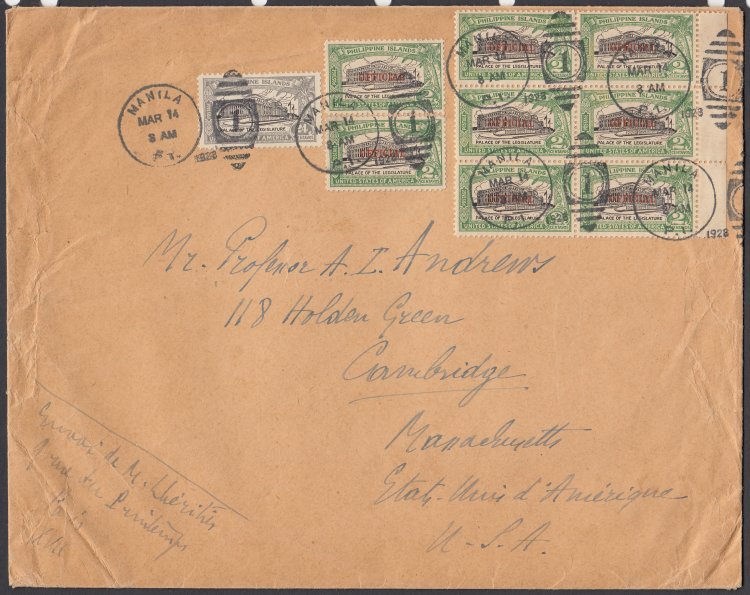 PHILIPPINE ISLANDS
OFFICIAL
PALACE OF THE LEGISLATURE
UNITED STATES OF AMERICA
2
MANILA
MAR 14
8 AM
P.I.
1928
1
Mr. Professor A. I. Andrews
118 Holden Green
Cambridge
Massachusetts
Etats-Unis d'Amérique
U.S.A.
Envoi de M. Lhéritier
rue du Printemps
Paris